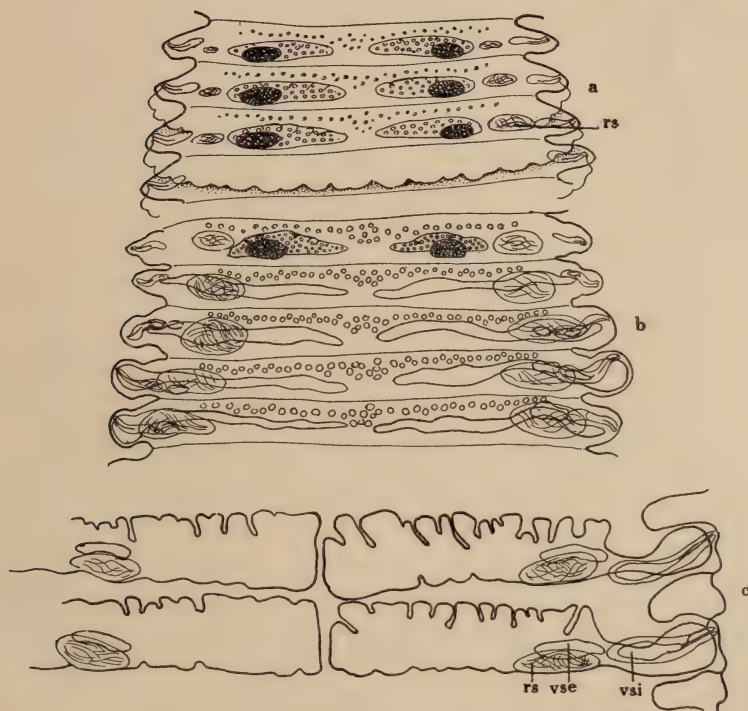 a
rs
b
c
rs vse vsi